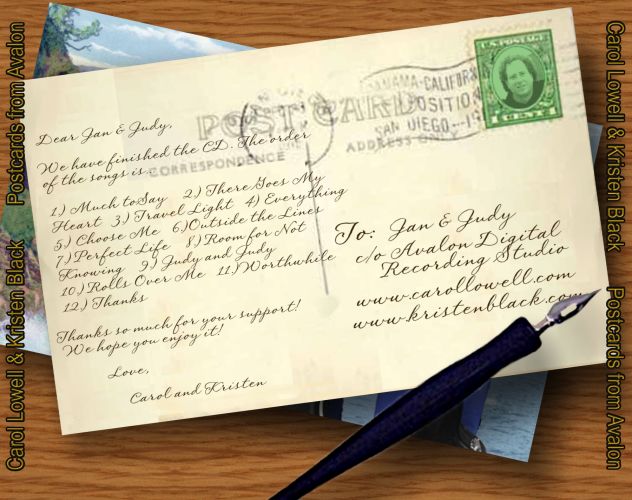 Postcards from Avalon
Carol Lowell & Kristen Black
U.S. POSTAGE
1 CENT 1
PANAMA-CALIFORN
POSITION
SAN DIEGO
POST CARD
CORRESPONDENCE
ADDRESS ONLY
Dear Jan & Judy,
We have finished the CD. The order
of the songs is
1.) Much to Say 2.) There Goes My
Heart 3.) Travel Light 4.) Everything
5.) Choose Me 6.) Outside the Lines
7.) Perfect Life 8.) Room for Not
Knowing 9.) Judy and Judy
10.) Rolls Over Me 11.) Worthwhile
12.) Thanks
Thanks so much for your support!
We hope you enjoy it!
Love,
Carol and Kristen
To: Jan & Judy
c/o Avalon Digital
Recording Studio
www.carollowell.com
www.kristenblack.com
Carol Lowell & Kristen Black
Postcards from Avalon